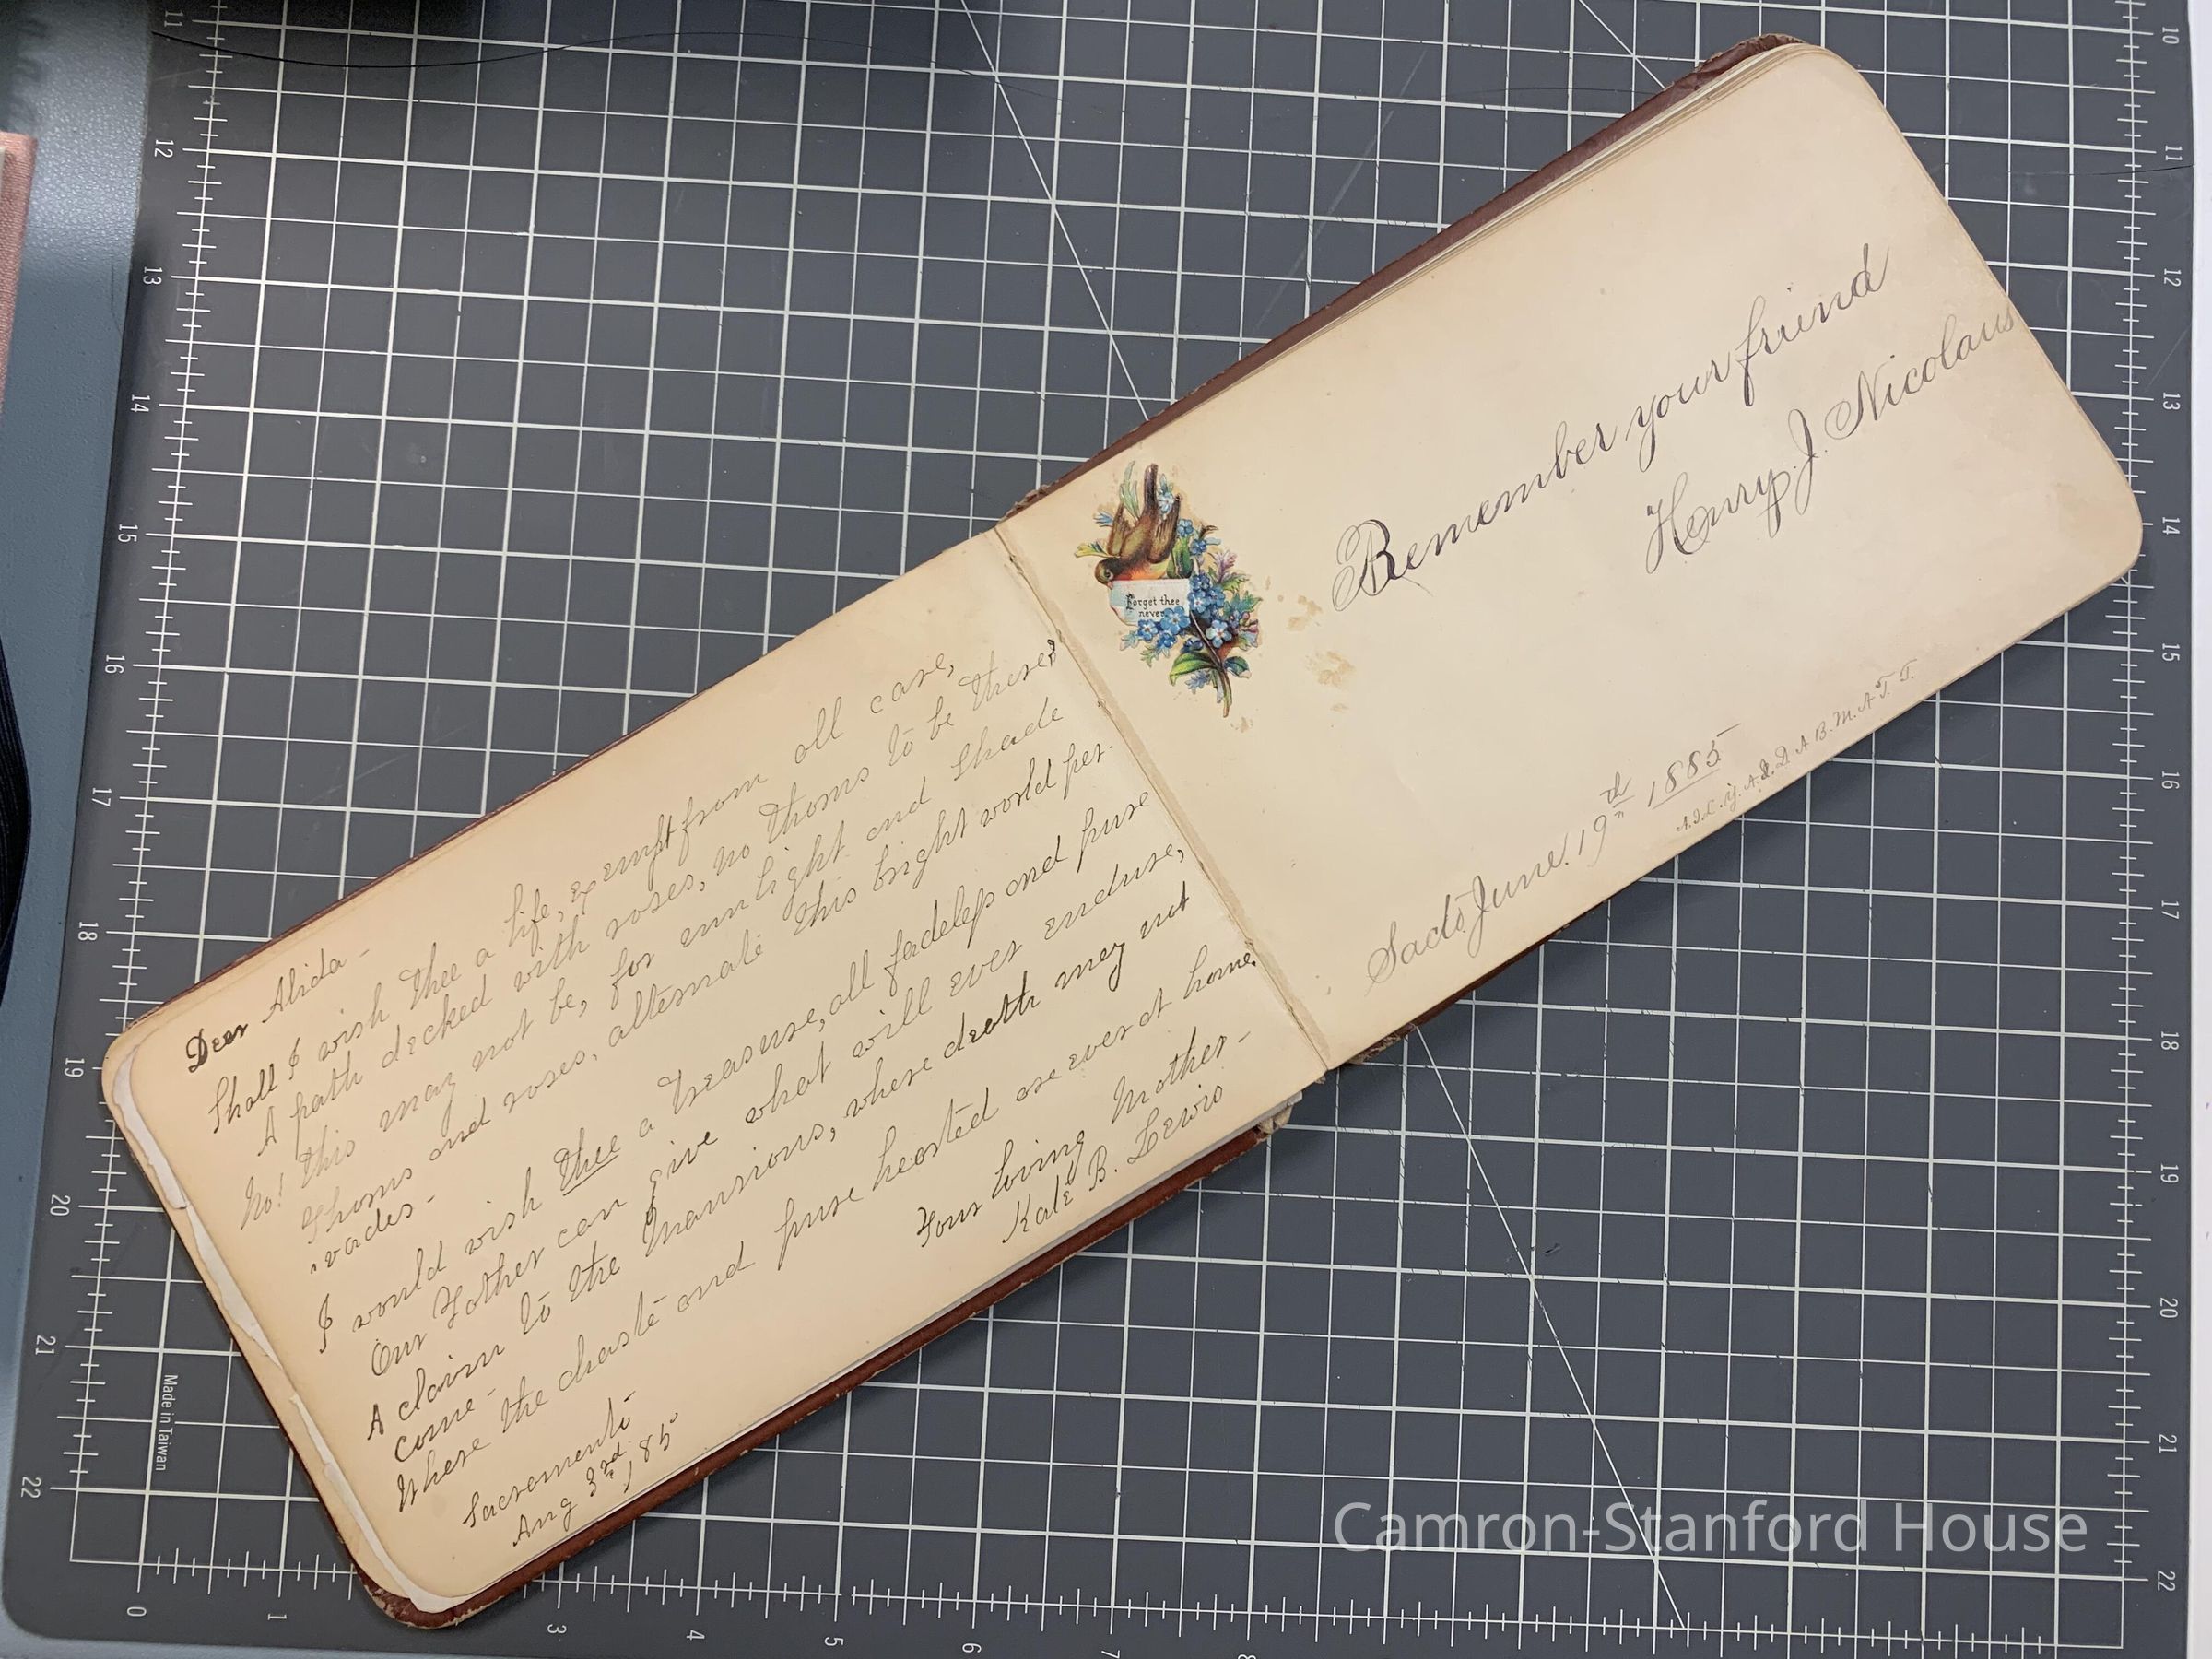 Dear Alida -
Shall I wish thee a life, exempt from all care,
A path decked with roses, no thorns to be there?
No! this may not be, for sunlight and shade
Thorns and roses, alternate this bright world per-
"vades -
I would wish thee a treasure, all fadeless and pure
Our Father can give what will ever endure,
A claim to the Mansions, where death may not
come -
Where the chaste and pure hearted are ever at home.
Your loving Mother -
Kate B. Lewis
Sacramento -
Aug 3rd
1885
Forget thee
never
Remember your friend
Henry J. Nicolaus
Sacto June. 19th 1885
A.B.M.A.T.T.
Camron-Stanford House
Made in Taiwan
11
12
13
14
15
16
17
18
19
20
21
22
0
1
3
4
5
6
7
8
10
11
12
13
14
15
16
17
18
19
20
21
22